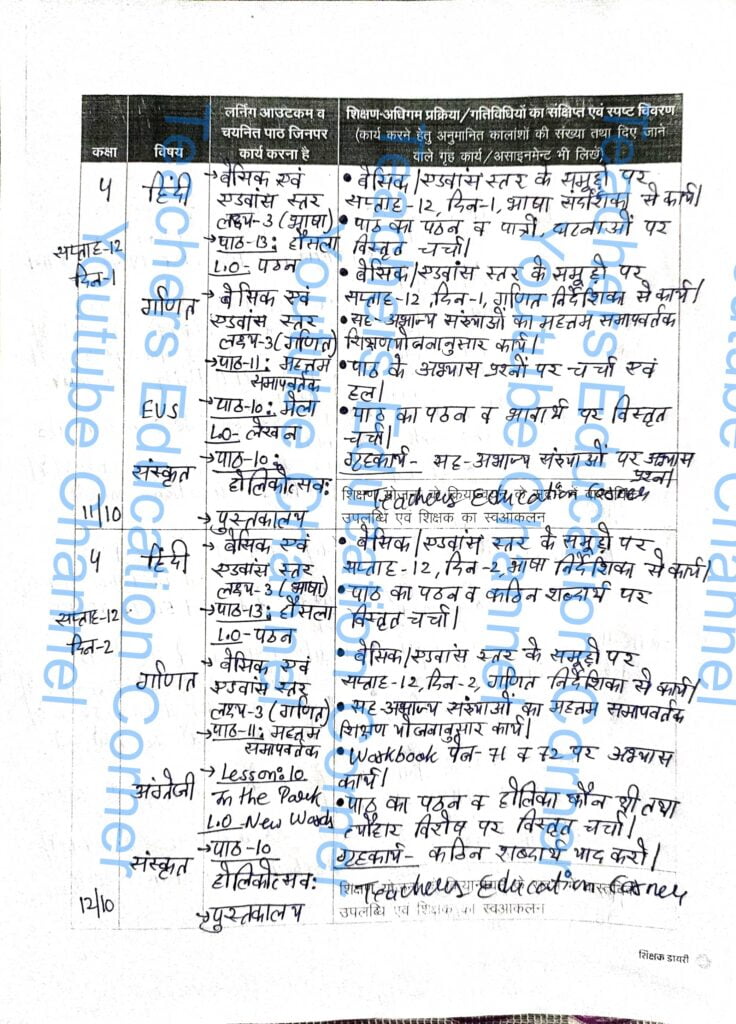 कक्षा
विषय
लर्निंग आउटकम व
चयनित पाठ जिनपर
कार्य करना है
शिक्षण-अधिगम प्रक्रिया/गतिविधियों का संक्षिप्त एवं स्पष्ट विवरण
(कार्य करने हेतु अनुमानित कालांशों की संख्या तथा दिए जाने
वाले गृह कार्य/असाइनमेन्ट भी लिखें)
4
सप्ताह-12
दिन-1
हिंदी
→ बेसिक एवं
एडवांस स्तर
लक्ष्य-3 (भाषा)
→ पाठ-13: हौसला
L.O- पठन
• बेसिक/एडवांस स्तर के समूहों पर
सप्ताह-12, दिन-1, भाषा संदर्शिका से कार्य।
• पाठ का पठन व पात्रों, घटनाओं पर
विस्तृत चर्चा।
गणित
→ बेसिक एवं
एडवांस स्तर
लक्ष्य-3 (गणित)
→ पाठ-11: महत्तम
समापवर्तक
• बेसिक/एडवांस स्तर के समूहों पर
सप्ताह-12, दिन-1, गणित निर्देशिका से कार्य।
• सह-अभाज्य संख्याओं का महत्तम समापवर्तक
शिक्षण योजनानुसार कार्य।
EVS
→ पाठ-10: मेला
L.O- लेखन
• पाठ के अभ्यास प्रश्नों पर चर्चा एवं
हल।
संस्कृत
→ पाठ-10:
होलिकोत्सव:
→ पुस्तकालय
• पाठ का पठन व भावार्थ पर विस्तृत
चर्चा।
गृहकार्य- सह-अभाज्य संख्याओं पर अभ्यास
प्रश्न।
11/10
शिक्षण
Teachers Education Corner
उपलब्धि एवं शिक्षक का स्वआकलन
4
सप्ताह-12
दिन-2
हिंदी
→ बेसिक एवं
एडवांस स्तर
लक्ष्य-3 (भाषा)
→ पाठ-13: हौसला
L.O- पठन
• बेसिक/एडवांस स्तर के समूहों पर
सप्ताह-12, दिन-2, भाषा निर्देशिका से कार्य।
• पाठ का पठन व कठिन शब्दार्थ पर
विस्तृत चर्चा।
गणित
→ बेसिक एवं
एडवांस स्तर
लक्ष्य-3 (गणित)
→ पाठ-11: महत्तम
समापवर्तक
• बेसिक/एडवांस स्तर के समूहों पर
सप्ताह-12, दिन-2 गणित निर्देशिका से कार्य।
• सह-अभाज्य संख्याओं का महत्तम समापवर्तक
शिक्षण योजनानुसार कार्य।
अंग्रेजी
→ Lesson:10
In the Park
L.O New Words
• Workbook पेज-71 व 72 पर अभ्यास
कार्य।
संस्कृत
→ पाठ-10
होलिकोत्सव:
→ पुस्तकालय
• पाठ का पठन व होलिका कौन थी तथा
त्यौहार विशेष पर विस्तृत चर्चा।
गृहकार्य- कठिन शब्दार्थ याद करो।
12/10
Teachers Education Corner
उपलब्धि एवं शिक्षक का स्वआकलन
शिक्षक डायरी
Teachers Education Corner
Youtube Channel
Teachers Education Corner
Youtube Channel
Teachers Education Corner
Youtube Channel